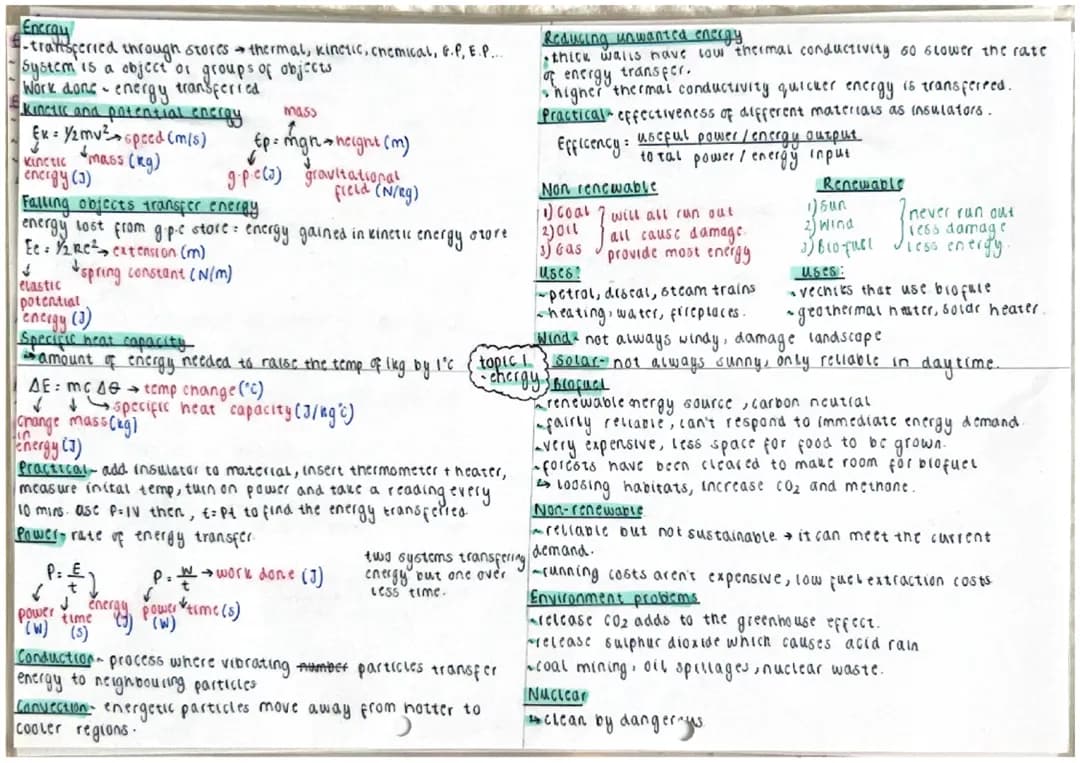 Energy
-transferred through stores → thermal, kinetic, chemical, G.P, E.P...
System is a object or groups of objects
Work done - energy transferred
Kinetic and potential energy
mass
Ek = ½mv² → speed (m/s)
Ep = mgh → height (m)
kinetic energy (J)
mass (kg)
g.p.e (J)
gravitational field (N/kg)
Falling objects transfer energy
energy lost from g.p.e store = energy gained in kinetic energy store
Ee = ½ke² → extension (m)
spring constant (N/m)
elastic
potential
energy (J)
Specific heat capacity
→ amount of energy needed to raise the temp of 1kg by 1°c
ΔE = mc Δθ → temp change (°c)
specific heat capacity (J/kg°c)
change in energy (J)
mass (kg)
Practical - add insulator to material, insert thermometer + heater,
measure inital temp, turn on power and take a reading every
10 mins. use P=IV then, E=Pt to find the energy transferred.
Power - rate of energy transfer.
two systems transfering
energy but one over
less time.
P = E/t
P = W/t → work done (J)
power (W)
time (s)
energy (J)
power (W)
time (s)
Conduction - process where vibrating number particles transfer
energy to neighbouring particles
Convection - energetic particles move away from hotter to
cooler regions.
topic 1
- energy
Reducing unwanted energy
• thick walls have low thermal conductivity so slower the rate
of energy transfer.
• higher thermal conductivity quicker energy is transfereed.
Practical - effectiveness of different materials as insulators.
Efficency = useful power / energy output
total power / energy input
Non renewable
1) Coal
2) Oil
3) Gas
will all run out
all cause damage.
provide most energy
Renewable
1) Sun
2) Wind
3) Bio-fuel
never run out
less damage
less energy.
Uses:
- petrol, diseal, steam trains
- heating, water, fireplaces.
Uses:
- vechiles that use biofule
- geothermal heater, solar heater.
Wind - not always windy, damage landscape
Solar - not always sunny, only reliable in daytime.
Biofuel
- renewable energy source, carbon neutral
- fairly reliable, can't respond to immediate energy demand.
- very expensive, less space for food to be grown.
- forests have been cleared to make room for biofuel
↳ loosing habitats, increase CO₂ and methane.
Non-renewable
- reliable but not sustainable → it can meet the current
demand.
- running costs aren't expensive, low fuel extraction costs
Environment problems
- release CO₂ adds to the greenhouse effect.
- release sulphur dioxide which causes acid rain
- coal mining, oil spillages, nuclear waste.
Nuclear
↳ clean by dangerous